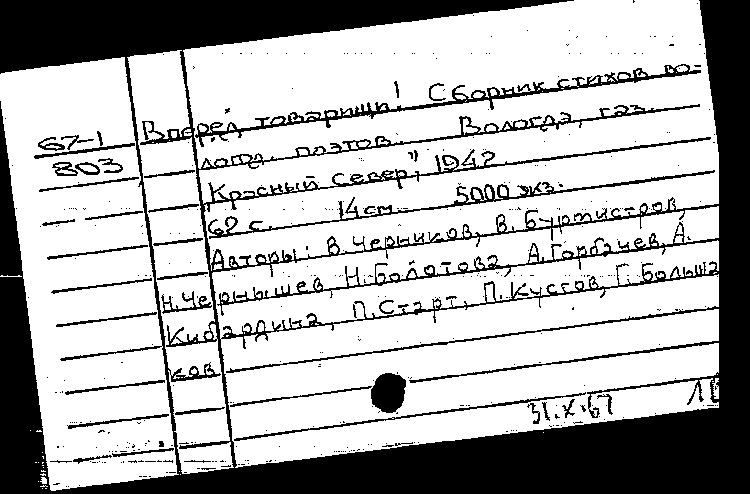 67-1 Вперед, товарищи! Сборник стихов во-
803 логд. поэтов. Вологда, газ.
"Красный север", 1942.
62 с. 14 см. 5000 экз.
Авторы: В. Черников, В. Бурмистров,
Н. Чернышев, Н. Болотова, А. Горбачев, А.
Кибардина, П. Старт, П. Кустов, Г. Большa
ков
31.X.67